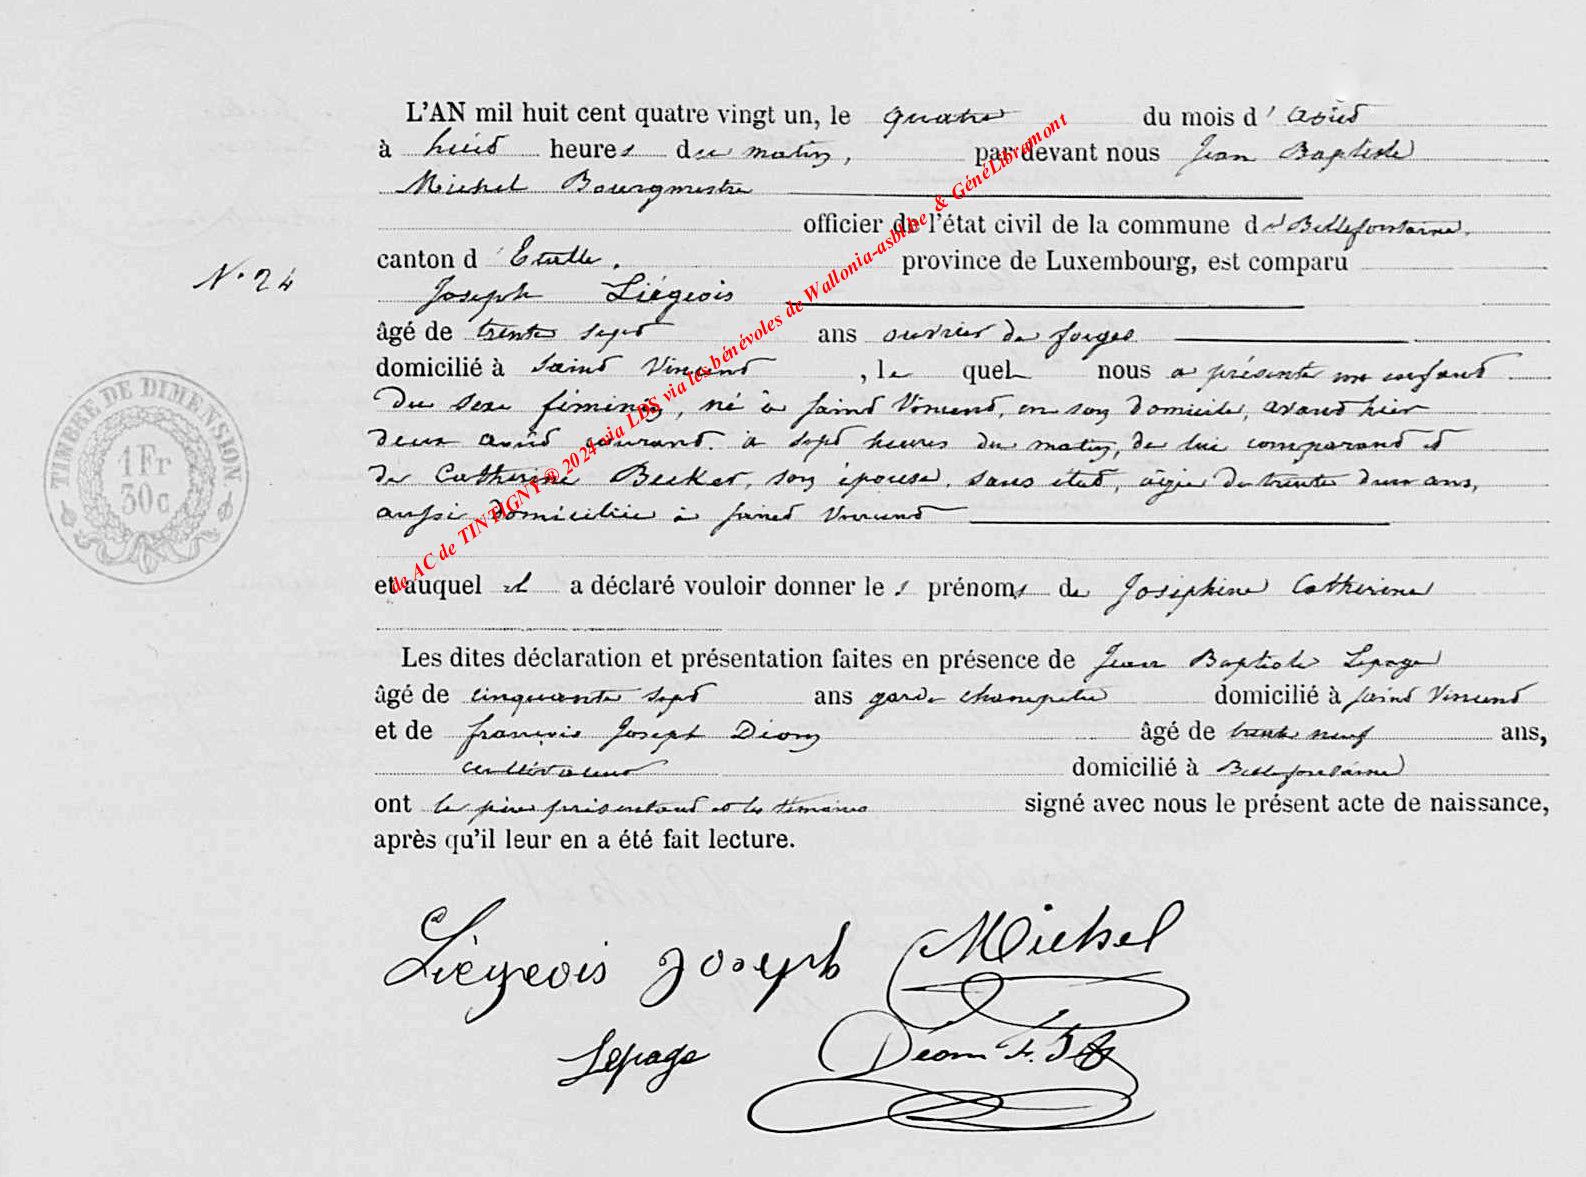 L'AN mil huit cent quatre vingt un, le quatre du mois d' août
à huit heures du matin, par devant nous Jean Baptiste
Michel Bourgmestre
officier de l'état civil de la commune de Bellefontaine,
canton d' Etalle, province de Luxembourg, est comparu
N° 24
Joseph Liégeois
âgé de trente sept ans ouvrier de forges
domicilié à Saint Vincent, lequel nous a présenté un enfant
du sexe féminin, né à Saint Vincent, en son domicile, avant hier
deux août courant à sept heures du matin, de lui comparant et
de Catherine Becker, son épouse, sans état, âgée de trente deux ans,
aussi domiciliée à Saint Vincent
et auquel il a déclaré vouloir donner les prénoms de Joséphine Catherine
Les dites déclaration et présentation faites en présence de Jean Baptiste Lepage
âgé de cinquante sept ans garde champetre domicilié à Saint Vincent
et de françois Joseph Déom âgé de trente neuf ans,
cultivateur domicilié à Bellefontaine
ont le père présentant et les témoins signé avec nous le présent acte de naissance,
après qu'il leur en a été fait lecture.
TIMBRE DE DIMENSION
1 Fr
30 c
de AC de TINTIGNY® 2024 via LDS via les bénévoles de Wallonia-asbl.be & GénéLibramont
Liégeois Joseph Michel
Lepage Déom F. J.